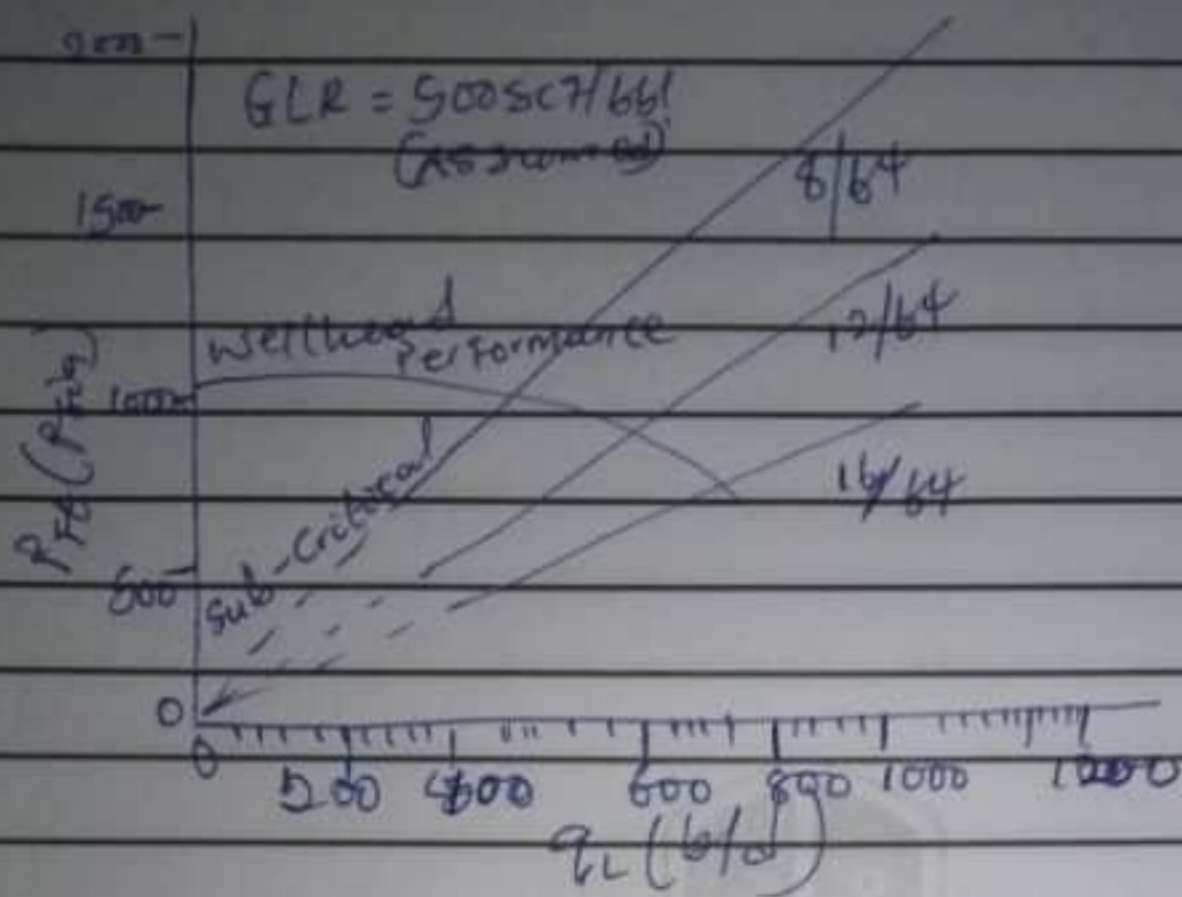 2000
GLR = 500scf/bbl
(assumed)
8/64
1500
Wellhead
Performance
12/64
1000
Sub-critical
16/64
500
0
0 200 400 600 800 1000 1200
qL (b/d)